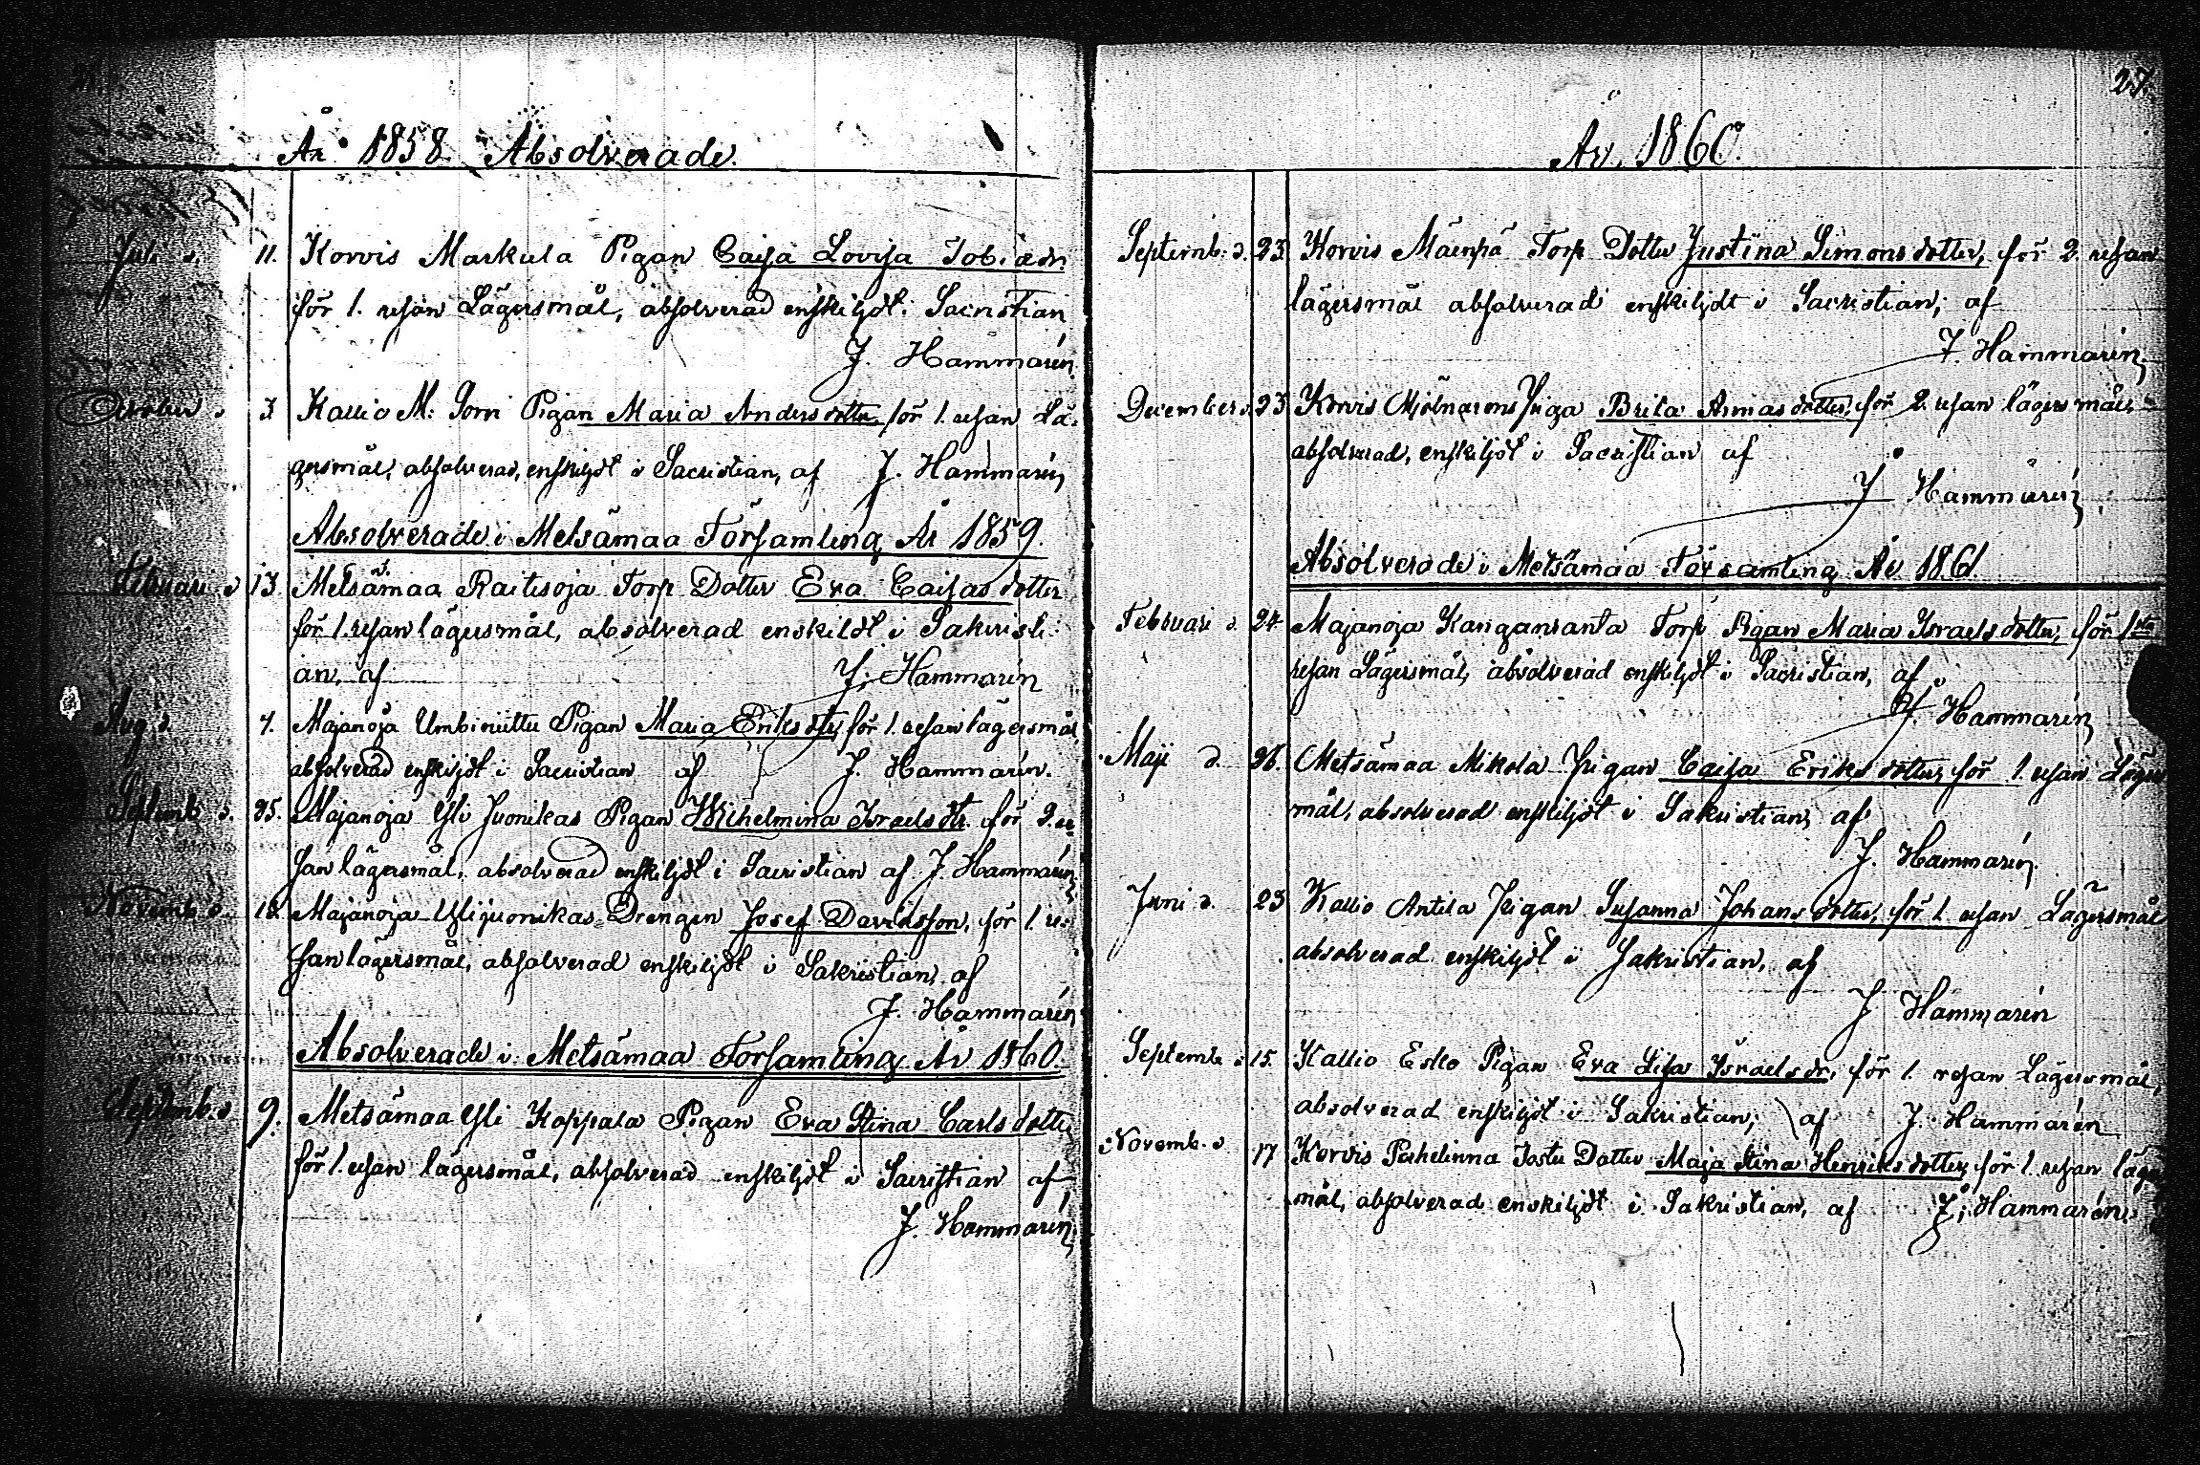 År 1858 Absolverade.
Juli d. 11. Korvis Markula Pigan Caisa Lovisa Tobiasdr.
för 1. resan Lägersmål, absolverad enskiljdt i Sacristian
J. Hammarén.
October d. 3 Kallio M: Sorri Pigan Maria Andersdotter, för 1. resan Lä-
gersmål, absolverad, enskiljdt i Sacristian, af J. Hammarén
Absolverade i Metsämaa Församling År 1859.
Februari d 13. Metsämaa Raitisoja Torp Dotter Eva Caisasdotter
för 1. resan lägersmål, absolverad enskildt i Sakristi-
an, af J. Hammarén
Aug. d. 7. Majanoja Pigan Maria Eriksdtr, för 1. resan lägersmål,
absolverad enskiljdt i Sacristian af J. Hammarén.
Septemb d. 25. Majanoja Yli Juonikas Pigan Wilhelmina Israelsdtr. för 2. re-
san lägersmål, absolverad enskiljdt i Sacristian af J. Hammarén
Novemb d. 18. Majanoja Ylijuonikas Drengen Josef Davidsson, för 1. re-
san lägersmål, absolverad enskiljdt i Sakristian, af
J. Hammarén
Absolverade i Metsämaa Församling År 1860.
Septemb. d. 9. Metsämaa Yli Koppala Pigan Eva Stina Carlsdotter
för 1. resan lägersmål, absolverad enskiljdt i Sacristian af
J. Hammarén
27.
År 1860.
Septemb. d. 23. Korvis Mäenpä Torp Dotter Justina Simonsdotter, för 2. resan
lägersmål absolverad enskiljdt i Sacristian, af
J. Hammarén
December d. 23 Korvis Mjölnarens piga Brita Annasdotter, för 2. resan lägersmål
absolverad, enskiljdt i Sacristian af
J Hammarén
Absolverade i Metsämaa Församling År 1861.
Februari d. 24. Majanoja Kanganranta Torp Pigan Maria Israelsdotter, för 1sta
resan Lägersmål, absolverad enskiljdt i Sacristian, af
J. Hammarén
Maji d. 26. Metsämaa Mikola pigan Caisa Eriksdotter, för 1. resan Läger
mål, absolverad enskiljdt i Sakristian, af
J. Hammarén.
Juni d. 23 Kallio Antila pigan Susanna Johansdotter, för 1. resan Lägersmål
absolverad enskiljdt i Sakristian, af
J Hammarén
Septemb d. 15. Kallio Esko Pigan Eva Lisa Israelsdr, för 1. resan Lägersmål,
absolverad enskiljdt i Sakristian, af J. Hammarén
Novemb. d 17 Korvis Dotter Maja Stina Henriksdotter, för 1. resan läger
mål, absolverad enskiljdt i Sakristian, af J. Hammarén